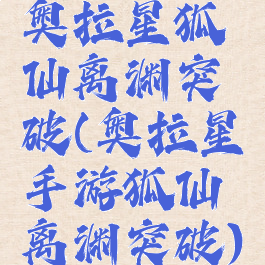 奥拉星狐
仙离渊突
破(奥拉星
手游狐仙
离渊突破)